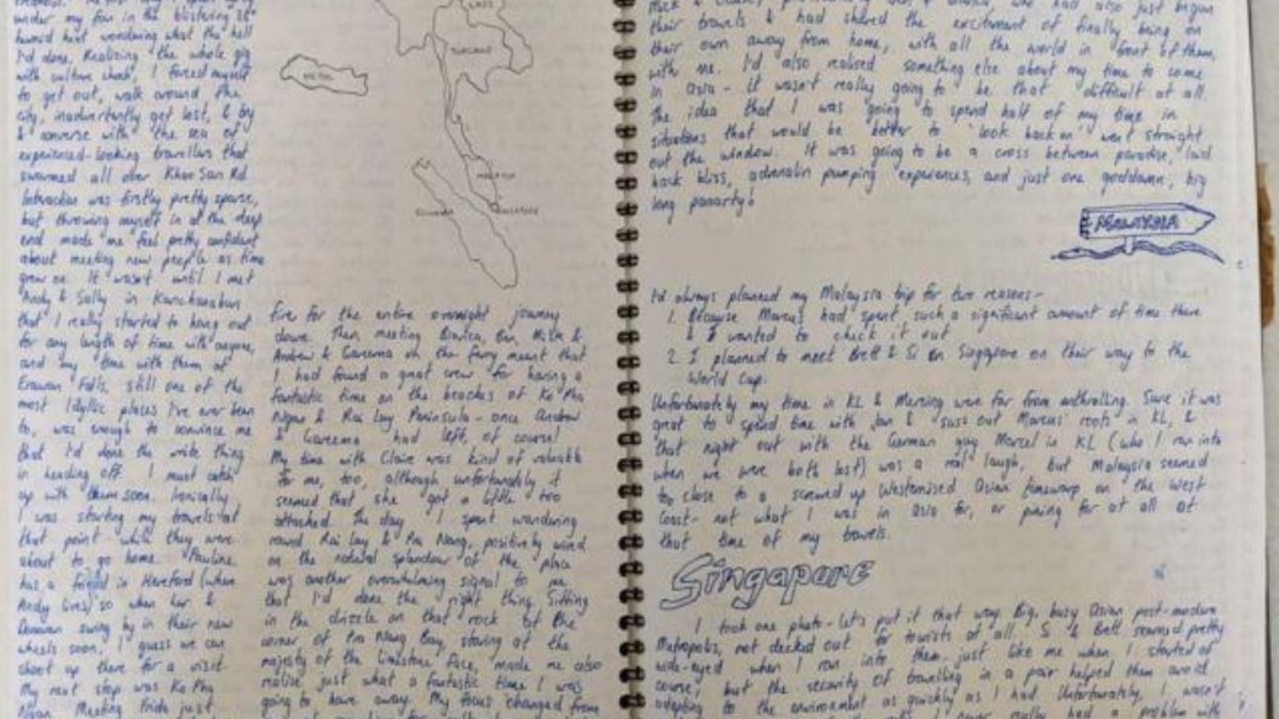 under my fan in the blistering 38°
humid heat wondering what the hell
I'd done. Realizing the whole gig
with culture shock, I forced myself
to get out, walk around the
city, inadvertently get lost, & try
& converse with the sea of
experienced-looking travellers that
swarmed all over Khao San Rd.
Interaction was firstly pretty sparse,
but throwing myself in at the deep
end made me feel pretty confident
about meeting new people as time
grew on. It wasn't until I met
Andy & Sally in Kanchanaburi
that I really started to hang out
for any length of time with anyone,
and my time with them at
Erawan Falls, still one of the
most idyllic places I've ever been
to, was enough to convince me
that I'd done the write thing
in heading off. I must catch
up with them soon. Ironically
I was starting my travels at
that point while they were
about to go home. Pauline
has a friend in Hereford (where
Andy lives) so when her &
swing by in their new
wheels soon, I guess we can
shoot up there for a visit.
My next step was Ko Pha
Ngan. Meeting Frida just
LAOS
THAILAND
NEPAL
MALAYSIA
SUMATRA
SINGAPORE
fire for the entire overnight journey
down. Then meeting Bianca, Ben, Mick &
Andrew & Gareema on the ferry meant that
I had found a great crew for having a
fantastic time on the beaches of Ko Pha
Ngan & Rai Lay Peninsula - once Andrew
& Gareema had left, of course!
My time with Claire was kind of valuable
for me, too, although unfortunately it
seemed that she got a little too
attached. The day I spent wandering
round Rai Lay & Pra Nang, positively wired
on the natural splendour of the place
was another overwhelming signal to me
that I'd done the right thing. Sitting
in the drizzle on that rock at the
corner of Pra Nang Bay, staring at the
majesty of the limestone face, made me also
realise just what a fantastic time I was
going to have away. My focus changed from
had also just begun
their travels & had shared the excitement of finally being on
their own away from home, with all the world in front of them,
with me. I'd also realised something else about my time to come
in Asia - it wasn't really going to be that difficult at all.
The idea that I was going to spend half of my time in
situations that would be better to 'look back on' went straight
out the window. It was going to be a cross between paradise, laid
back bliss, adrenalin pumping experiences, and just one goddamn, big
long paaarty!
MALAYSIA
I'd always planned my Malaysia trip for two reasons-
1. Because Marcus had spent such a significant amount of time there
& I wanted to check it out
2. I planned to meet Brett & Si in Singapore on their way to the
World Cup.
Unfortunately my time in KL & Mersing were far from enthralling. Sure it was
great to spend time with Jan & suss out Marcus' roots in KL, &
that night out with the German guy Marcel in KL (who I ran into
when we were both lost) was a real laugh, but Malaysia seemed
too close to a screwed up Westernised Asian timewarp on the West
Coast - not what I was in Asia for, or pining for at all at
that time of my travels.
Singapore
I took one photo - let's put it that way. Big, busy Asian post-modern
Metropolis, not decked out for tourists at all. Si & Brett seemed pretty
wide-eyed when I ran into them, just like me when I started of
course, but the security of travelling in a pair helped them avoid
adapting to the environment as quickly as I had. Unfortunately, I wasn't
I never really had a problem with